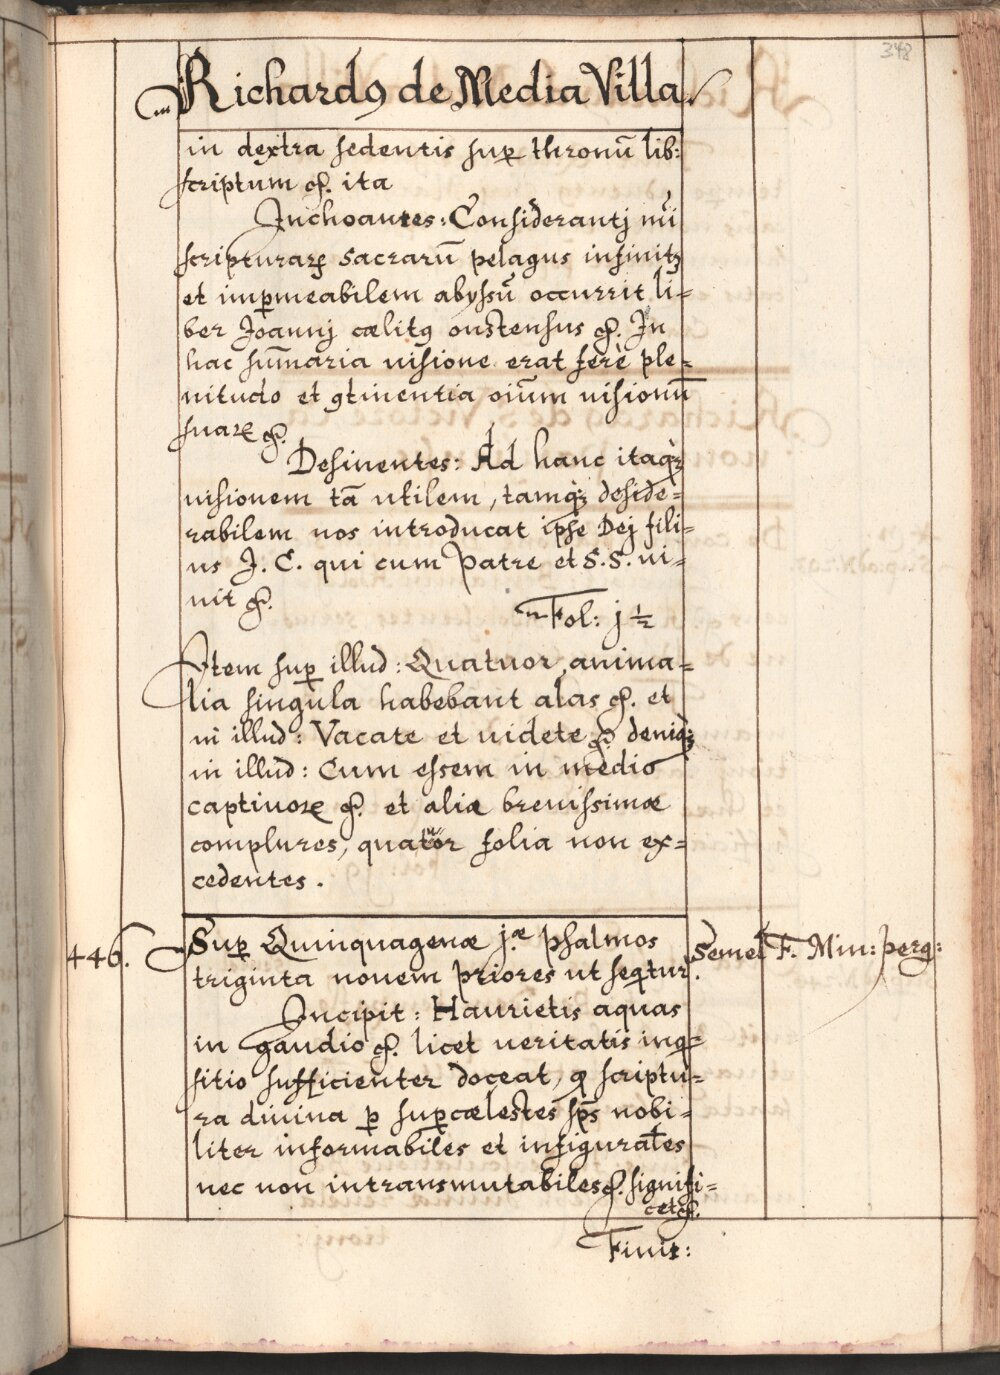 348
Richardꝯ de Media Villa.
in dextra sedentis sup̱ thronū lib:
scriptum &c. ita
Inchoantes: Considerantj mi
scripturaꝝ sacrarū pelagus infinitꝫ
et imp̱meabilem abyssū occurrit li=
ber Joannj cælitꝯ onstensus &c. In
hac sūmaria uisione erat ferè ple=
nitudo et ꝯtinentia oiūm uisionū
suaꝝ &c.
Desinentes: Ad hanc itaqꝫ
uisionem tā utilem, tamqꝫ deside=
rabilem nos introducat ipse Dej fili=
us J. C. qui cum Patre et S. S. ui=
uit &c.
Fol: j ½
Item sup̱ illud: Quatuor anima=
lia singula habebant alas &c. et
in illud: Vacate et uidete &c deniqꝫ
in illud: Cum essem in medio
captiuoꝝ &c. et aliæ breuissimæ
complures, quatuor folia non ex=
cedentes.
446. Sup̱ Quinquagenæ j.æ psalmos Semel F. Min: perg:
triginta nouem priores ut seqtur.
Incipit: Haurietis aquas
in gaudio &c. licet ueritatis inq=
sitio sufficienter doceat, q scriptu=
ra diuina p̱ sup̱cælestes sp̄s nobi=
liter informabiles et infigurales
nec non intransmutabiles &c. signifi=
cet &c.
Finit: